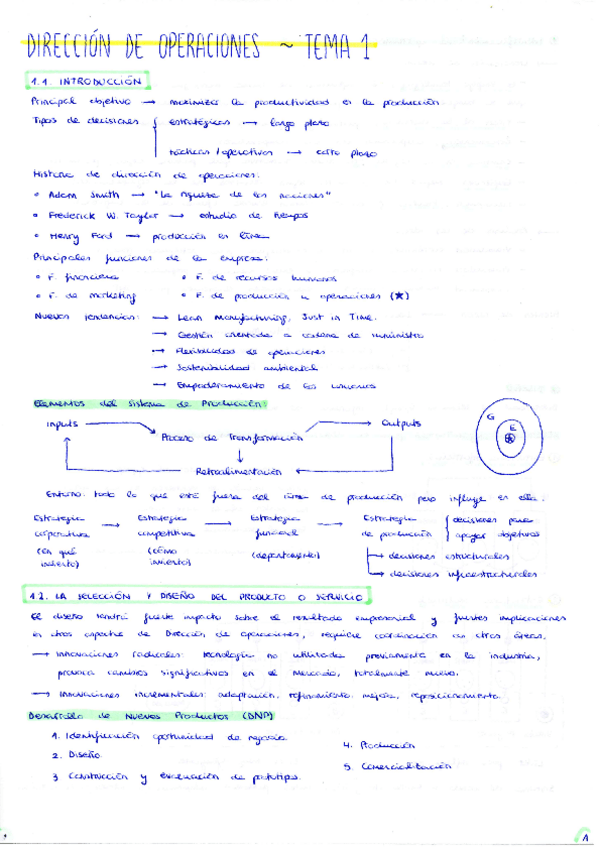 DIRECCIÓN DE OPERACIONES ~ TEMA 1
1.1. INTRODUCCIÓN
Principal objetivo → maximizar la productividad en la producción
Tipos de decisiones { estratégicas → largo plazo
tácticas / operativos → corto plazo
Historia de dirección de operaciones:
• Adam Smith → "la riqueza de las naciones"
• Frederick W. Taylor → estudio de tiempos
• Henry Ford → producción en línea
Principales funciones de la empresa:
• F. financiera • F. de recursos humanos
• F. de marketing • F. de producción u operaciones (★)
Nuevas tendencias: → Lean manufacturing, Just in Time.
→ Gestión orientada a cadena de suministro
→ Flexibilidad de operaciones
→ Sostenibilidad ambiental
→ Empoderamiento de los usuarios
Elementos del Sistema de Producción:
Inputs → Proceso de Transformación → Outputs
Retroalimentación
G
E
★
Entorno: todo lo que está fuera del área de producción pero influye en ella.
Estrategia corporativa (en qué invierto) → Estrategia competitiva (cómo invierto) → Estrategia funcional (departamento) → Estrategia de producción { decisiones para apoyar objetivos
→ decisiones estructurales
→ decisiones infraestructurales
1.2. LA SELECCIÓN Y DISEÑO DEL PRODUCTO O SERVICIO
El diseño tendrá fuerte impacto sobre el resultado empresarial y fuertes implicaciones
en otros aspectos de Dirección de operaciones, requiere coordinación con otras áreas.
→ Innovaciones radicales: tecnología no utilizada previamente en la industria,
provoca cambios significativos en el mercado, totalmente nuevo.
→ Innovaciones incrementales: adaptación, refinamiento, mejora, reposicionamiento.
Desarrollo de Nuevos Productos (DNP)
1. Identificación oportunidad de negocio
2. Diseño
3. Construcción y evaluación de prototipos.
4. Producción
5. Comercialización
1